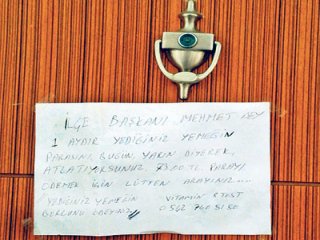 İLÇE BAŞKANI MEHMET BEY
1 AYDIR YEDİĞİNİZ YEMEĞİN
PARASINI BUGÜN YARIN DİYEREK,
ATLATIYORSUNUZ. 7500 TL. PARAYI
ÖDEMEK İÇİN LÜTFEN ARAYINIZ....
YEDİĞİNİZ YEMEĞİN VİTAMİN REST
BORCUNU ÖDEYİNİZ 0 542